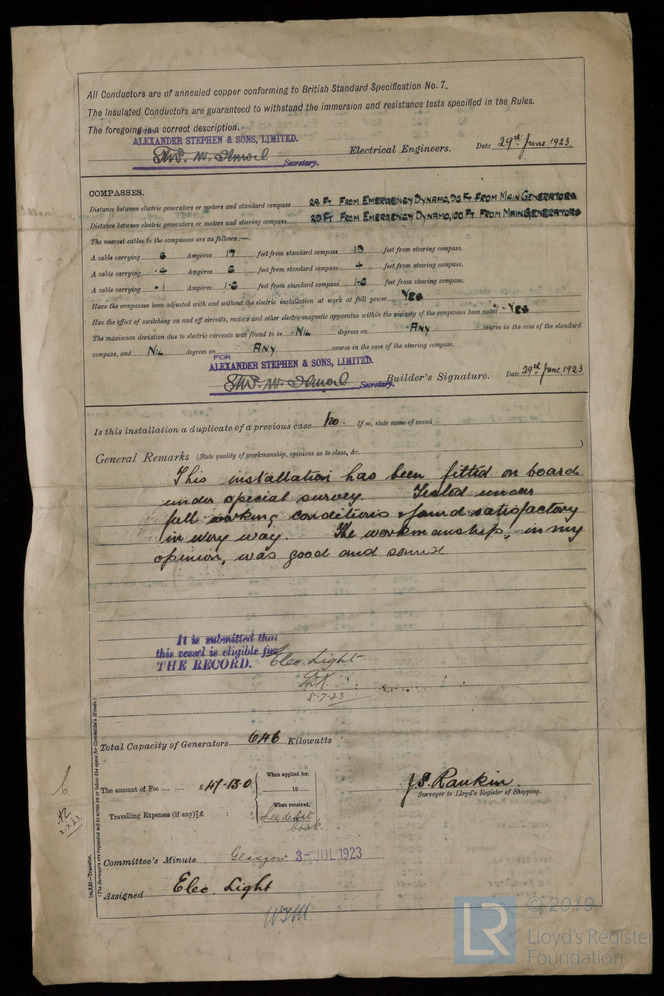 All Conductors are of annealed copper conforming to British Standard Specification No. 7.
The Insulated Conductors are guaranteed to withstand the immersion and resistance tests specified in the Rules.
The foregoing is a correct description.
ALEXANDER STEPHEN & SONS, LIMITED.
Secretary. Electrical Engineers. Date 29th June 1923.
COMPASSES.
Distance between electric generators or motors and standard compass 24 FT FROM EMERGENCY DYNAMO, 90 FT FROM MAIN GENERATORS
Distance between electric generators or motors and steering compass 20 FT FROM EMERGENCY DYNAMO, 100 FT FROM MAIN GENERATORS
The nearest cables to the compasses are as follows:—
A cable carrying 6 Ampères 17 feet from standard compass 13 feet from steering compass.
A cable carrying .4 Ampères 6 feet from standard compass 4 feet from steering compass.
A cable carrying .1 Ampères 1.6 feet from standard compass 1.6 feet from steering compass.
Have the compasses been adjusted with and without the electric installation at work at full power YES
Has the effect of switching on and off circuits, motors and other electro-magnetic apparatus within the vicinity of the compasses been noted YES
The maximum deviation due to electric currents was found to be NIL degrees on ANY course in the case of the standard
compass, and NIL degrees on ANY course in the case of the steering compass.
FOR
ALEXANDER STEPHEN & SONS, LIMITED.
Secretary. Builder's Signature. Date 29th June 1923
Is this installation a duplicate of a previous case No. If so, state name of vessel
General Remarks (State quality of workmanship, opinions as to class, &c.)
This installation has been fitted on board
under special survey. Tested under
full working conditions & found satisfactory
in every way. The workmanship, in my
opinion, was good and sound
It is submitted that
this vessel is eligible for
THE RECORD. Elec. Light
5-7-23
Total Capacity of Generators 646 Kilowatts
The amount of Fee £47-13.0
When applied for,
19
Travelling Expenses (if any) £
When received,
See debit
book.
J.S. Rankin.
Surveyor to Lloyd's Register of Shipping.
Committee's Minute Glasgow 3-JUL 1923
Assigned Elec. Light
Im.821.—Transfer.
(The Surveyors are requested not to write on or below the space for Committee's Minute.)
© 2019
LR
Lloyd's Register
Foundation